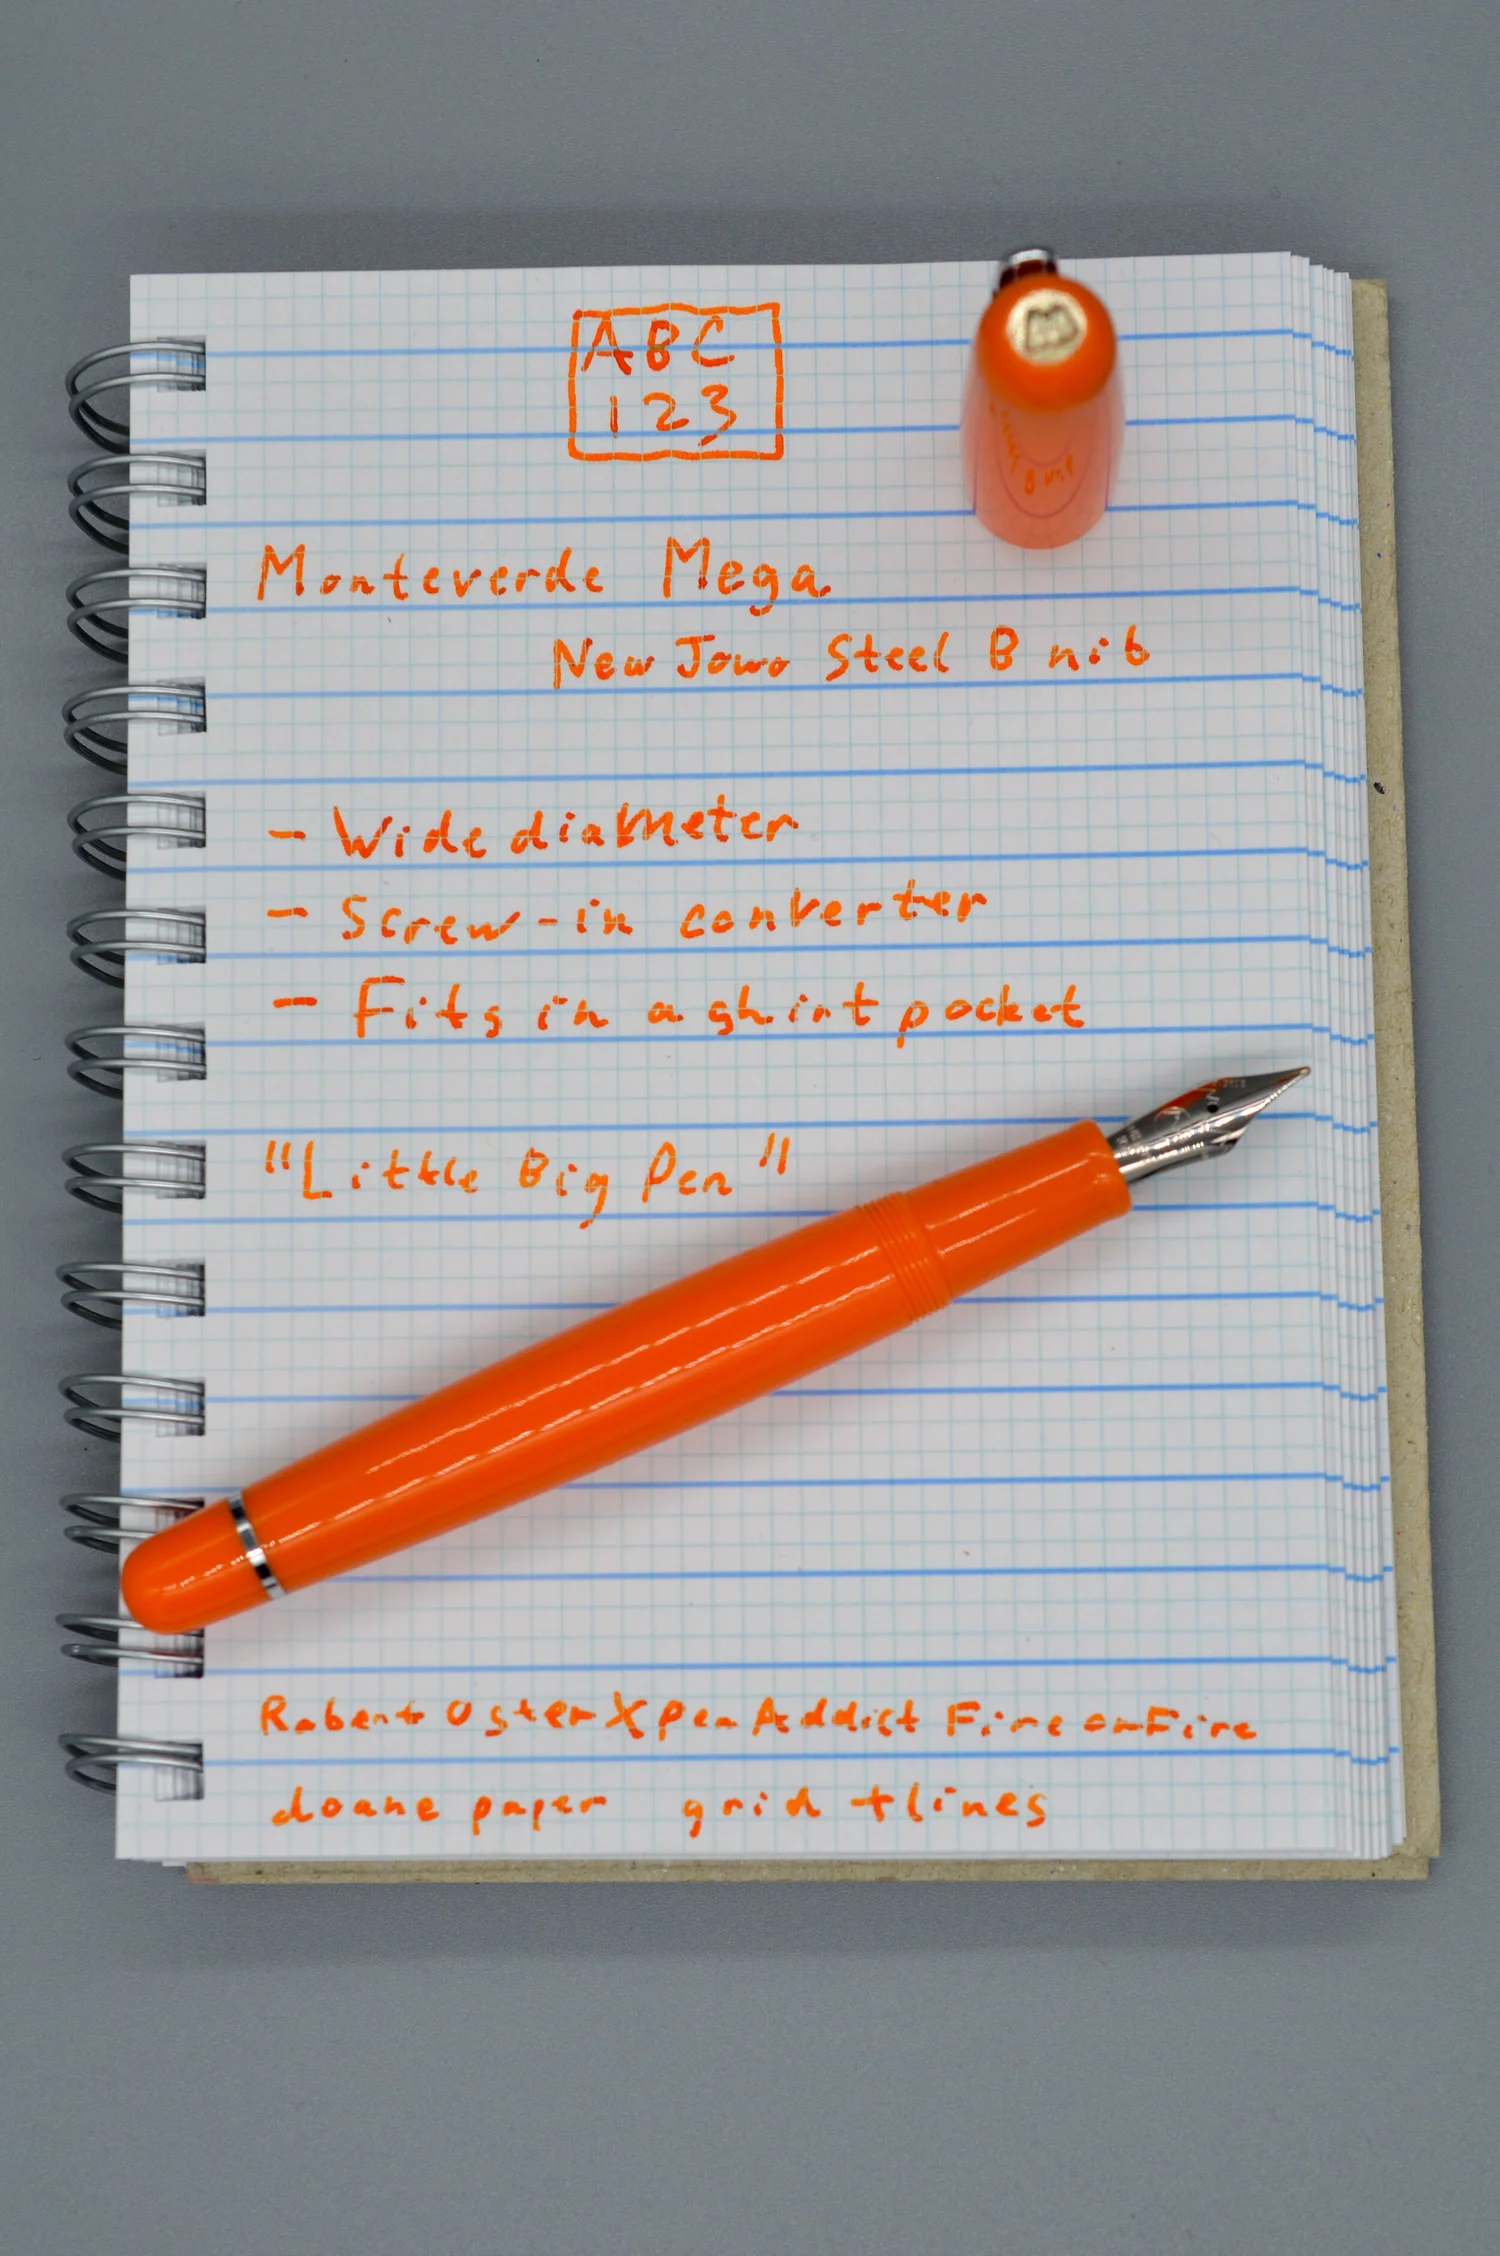 ABC
123
Monteverde Mega
New Jowo Steel B nib
- Wide diameter
- Screw-in converter
- Fits in a shirt pocket
"Little Big Pen"
Robert Oster X Pen Addict Fire on Fire
doane paper grid + lines